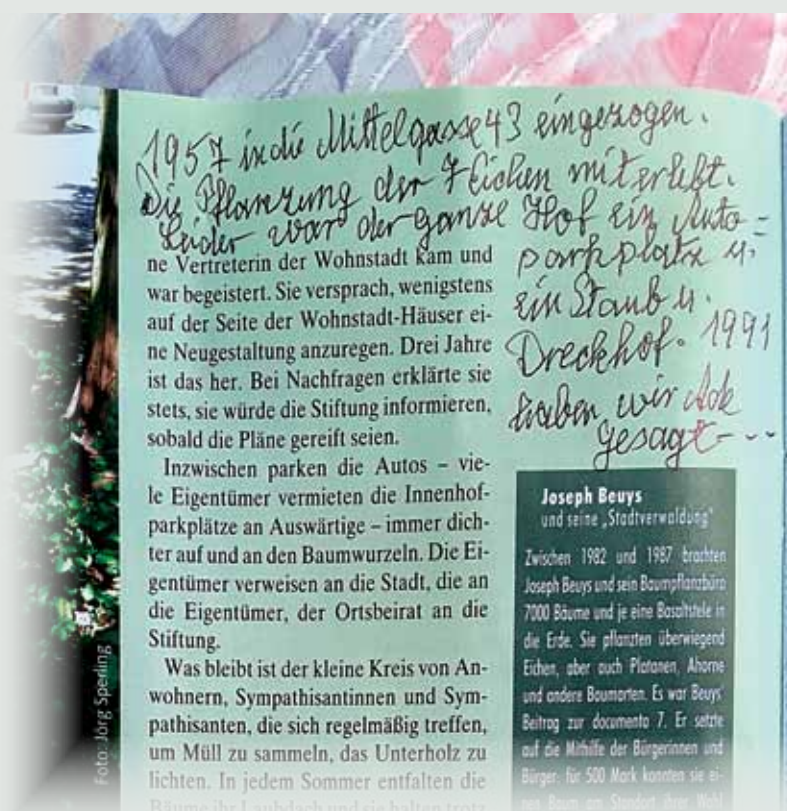 1957 in die Mittelgasse 43 eingezogen.
Die Pflanzung der 7 Eichen miterlebt.
Leider war der ganze Hof ein Auto=
parkplatz u.
ein Staub u.
Dreckhof. 1991
haben wir Ade
gesagt - - -
ne Vertreterin der Wohnstadt kam und
war begeistert. Sie versprach, wenigstens
auf der Seite der Wohnstadt-Häuser ei-
ne Neugestaltung anzuregen. Drei Jahre
ist das her. Bei Nachfragen erklärte sie
stets, sie würde die Stiftung informieren,
sobald die Pläne gereift seien.
Inzwischen parken die Autos – vie-
le Eigentümer vermieten die Innenhof-
parkplätze an Auswärtige – immer dich-
ter auf und an den Baumwurzeln. Die Ei-
gentümer verweisen an die Stadt, die an
die Eigentümer, der Ortsbeirat an die
Stiftung.
Was bleibt ist der kleine Kreis von An-
wohnern, Sympathisantinnen und Sym-
pathisanten, die sich regelmäßig treffen,
um Müll zu sammeln, das Unterholz zu
lichten. In jedem Sommer entfalten die
Bäume ihr Laubdach und sie halten trotz
Joseph Beuys
und seine „Stadtverwaldung“
Zwischen 1982 und 1987 brachten
Joseph Beuys und sein Baumpflanzbüro
7000 Bäume und je eine Basaltstele in
die Erde. Sie pflanzten überwiegend
Eichen, aber auch Platanen, Ahorne
und andere Baumarten. Es war Beuys'
Beitrag zur documenta 7. Er setzte
auf die Mithilfe der Bürgerinnen und
Bürger: für 500 Mark konnten sie ei-
nen Baum am Standort ihrer Wahl
Foto: Jörg Sperling